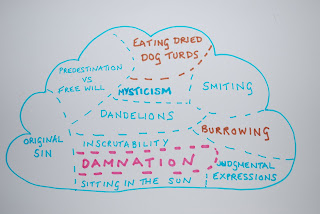 EATING DRIED
DOG TURDS
PREDESTINATION
VS
FREE WILL
MYSTICISM
SMITING
DANDELIONS
BURROWING
ORIGINAL
SIN
INSCRUTABILITY
DAMNATION
SITTING IN THE SUN
JUDGMENTAL
EXPRESSIONS